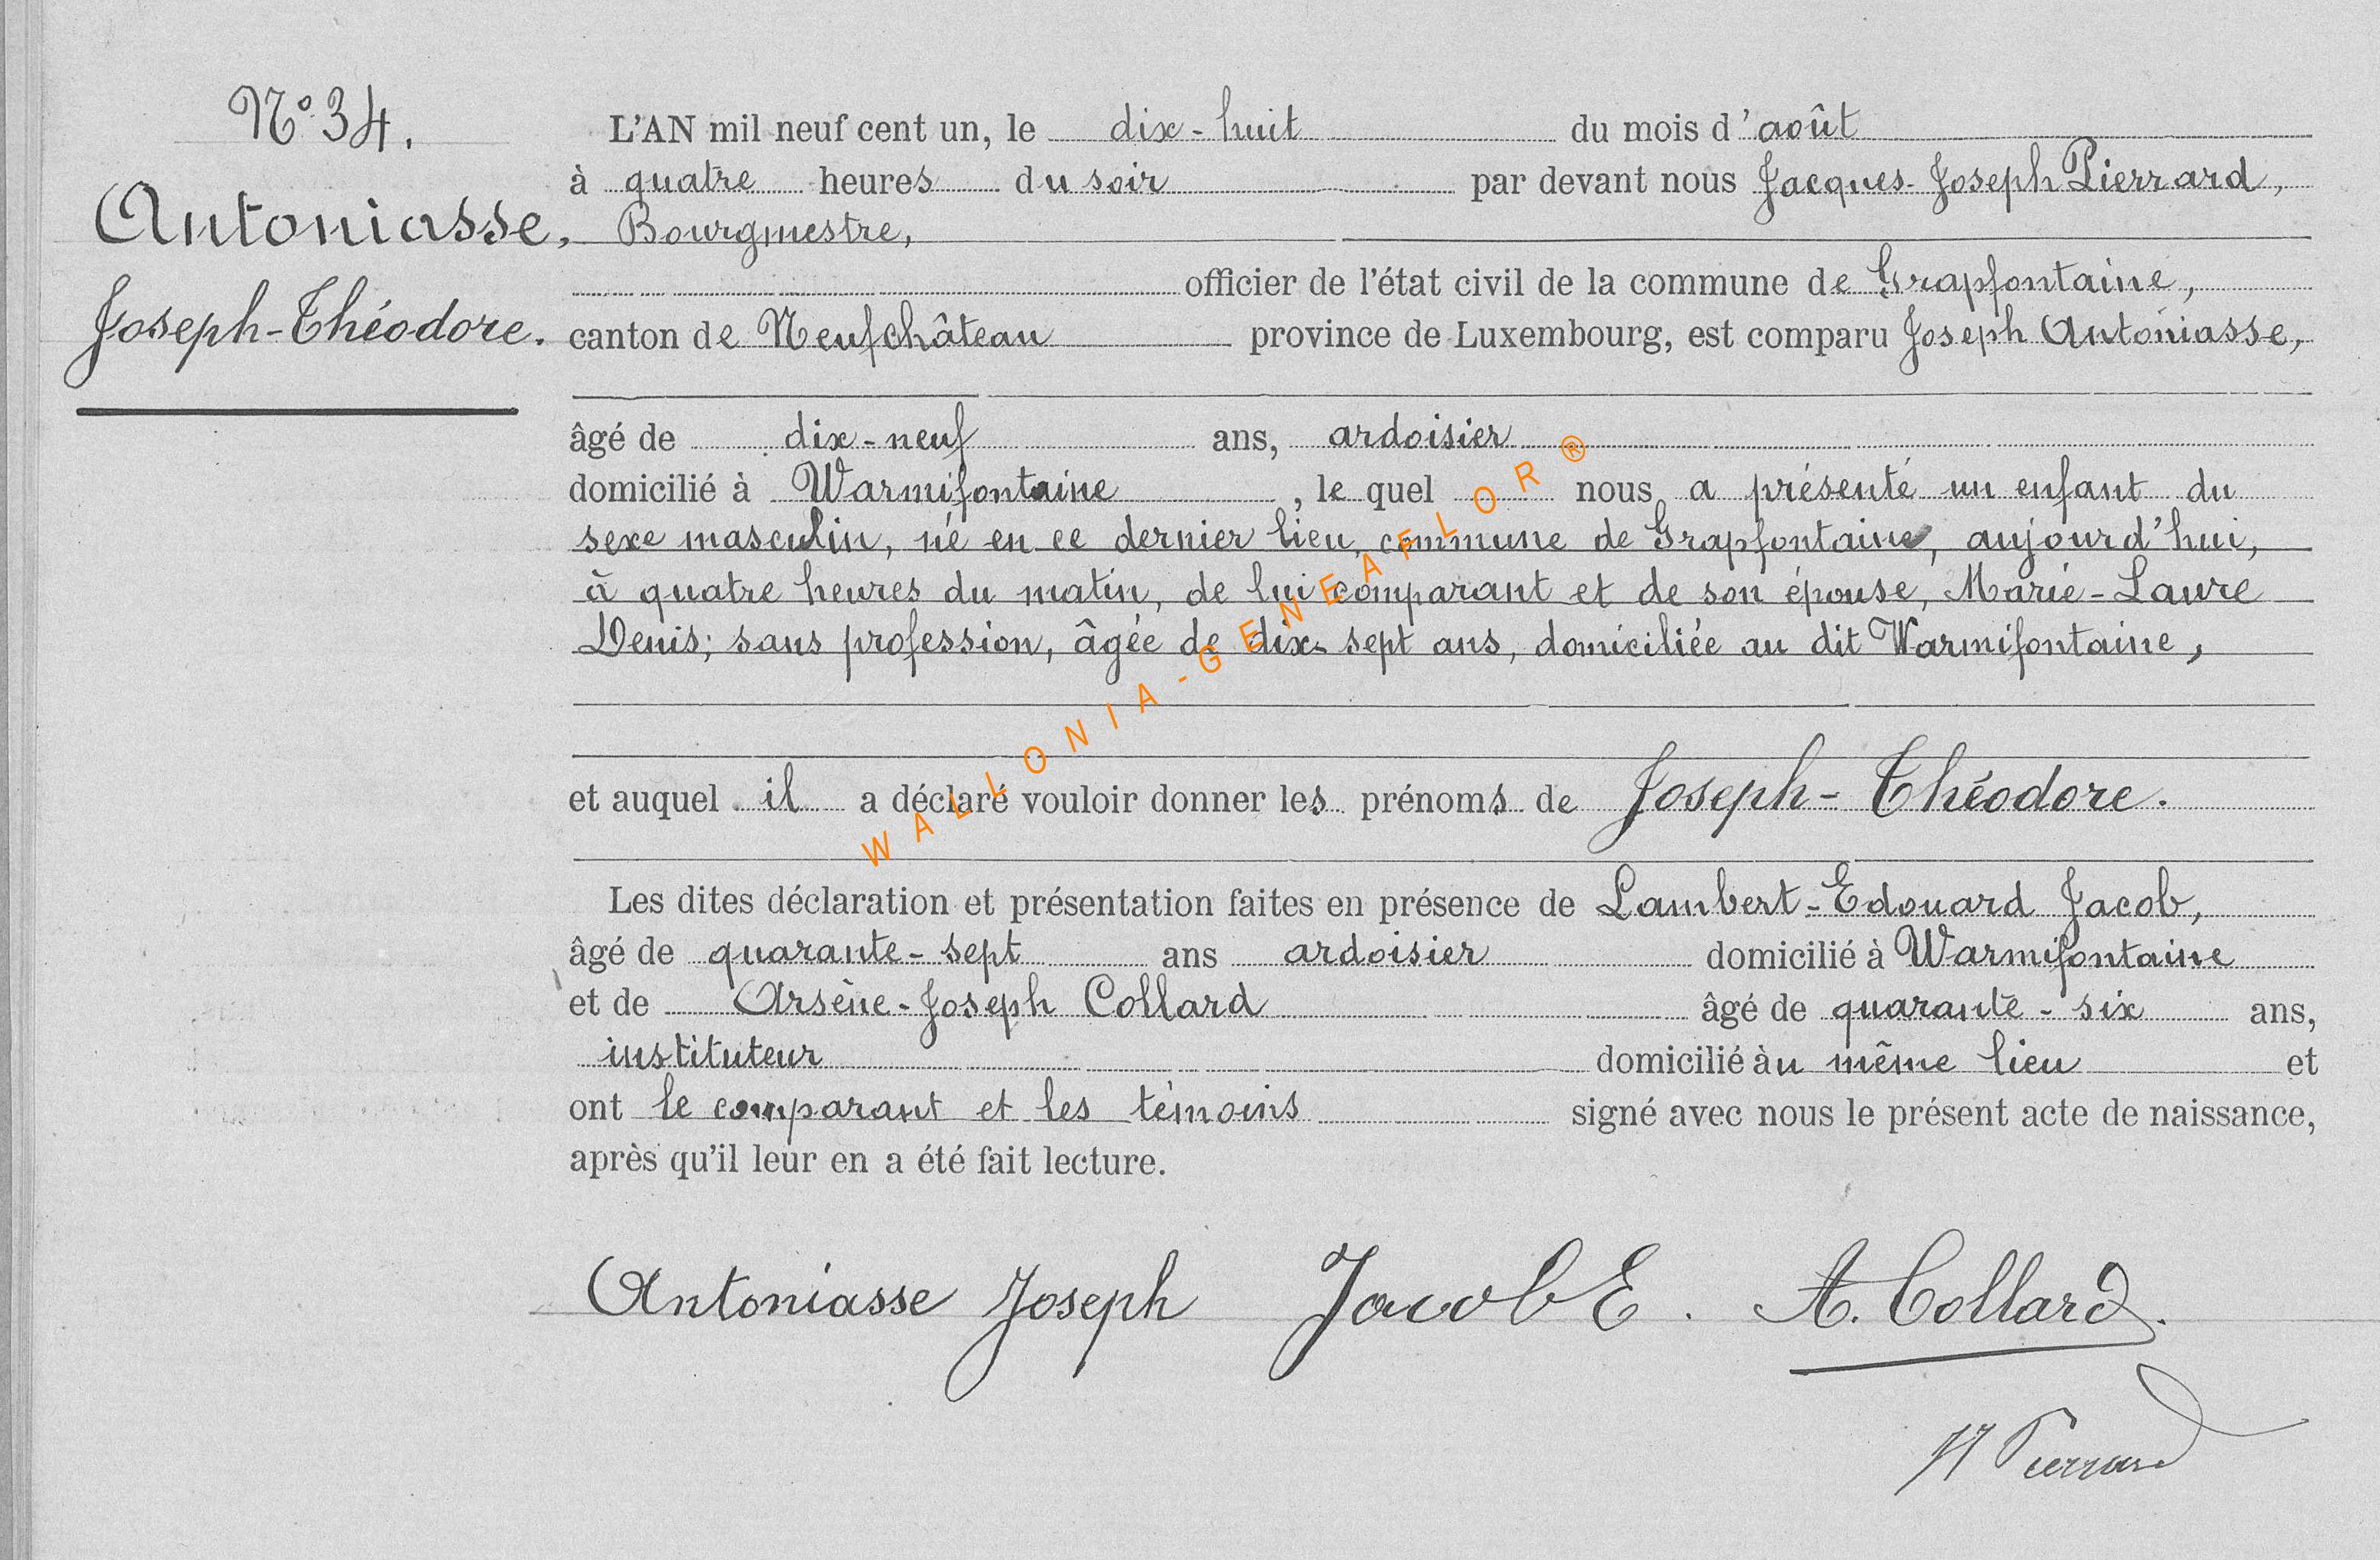 N° 34.
Antoniasse,
Joseph-Théodore.
L'AN mil neuf cent un, le dix-huit du mois d'août
à quatre heures du soir par devant nous Jacques-Joseph Pierrard,
Bourgmestre,
officier de l'état civil de la commune de Grapfontaine,
canton de Neufchâteau province de Luxembourg, est comparu Joseph Antoniasse,
âgé de dix-neuf ans, ardoisier
domicilié à Warmifontaine, le quel nous a présenté un enfant du
sexe masculin, né en ce dernier lieu, commune de Grapfontaine, aujourd'hui,
à quatre heures du matin, de lui comparant et de son épouse, Marie-Laure
Denis; sans profession, âgée de dix-sept ans, domiciliée au dit Warmifontaine,
et auquel il a déclaré vouloir donner les prénoms de Joseph-Théodore.
Les dites déclaration et présentation faites en présence de Lambert-Edouard Jacob,
âgé de quarante-sept ans ardoisier domicilié à Warmifontaine
et de Arsène-Joseph Collard âgé de quarante-six ans,
instituteur domicilié àu même lieu et
ont le comparant et les témoins signé avec nous le présent acte de naissance,
après qu'il leur en a été fait lecture.
Antoniasse Joseph Jacob E. A. Collard.
JJ Pierrard
WALLONIA-GENEAFLOR®